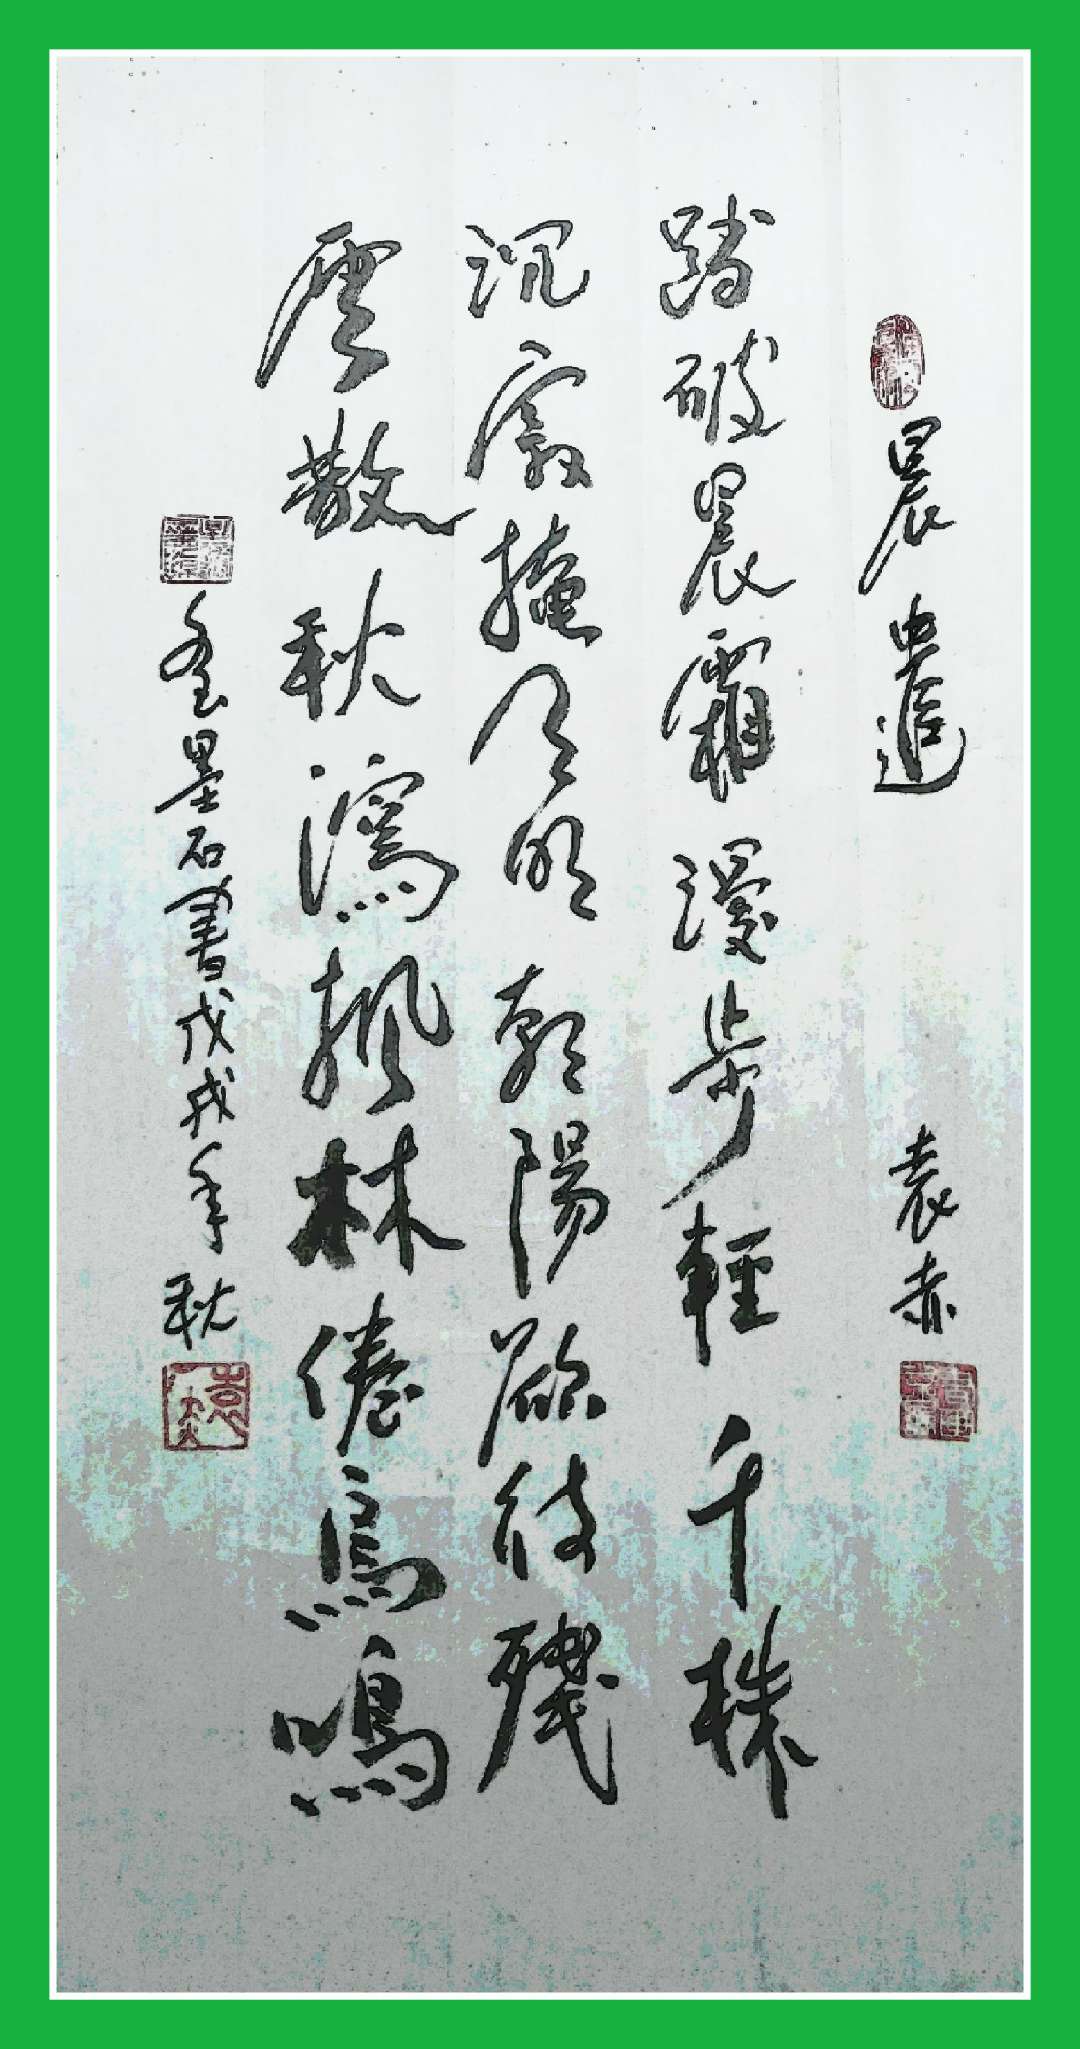 晨遣
袁赤
踏破晨霜漫步輕千株
沉寂掩天明朝陽欲待殘
雲散秋瀉楓林倦鳥鳴
墨石書戊戌年秋